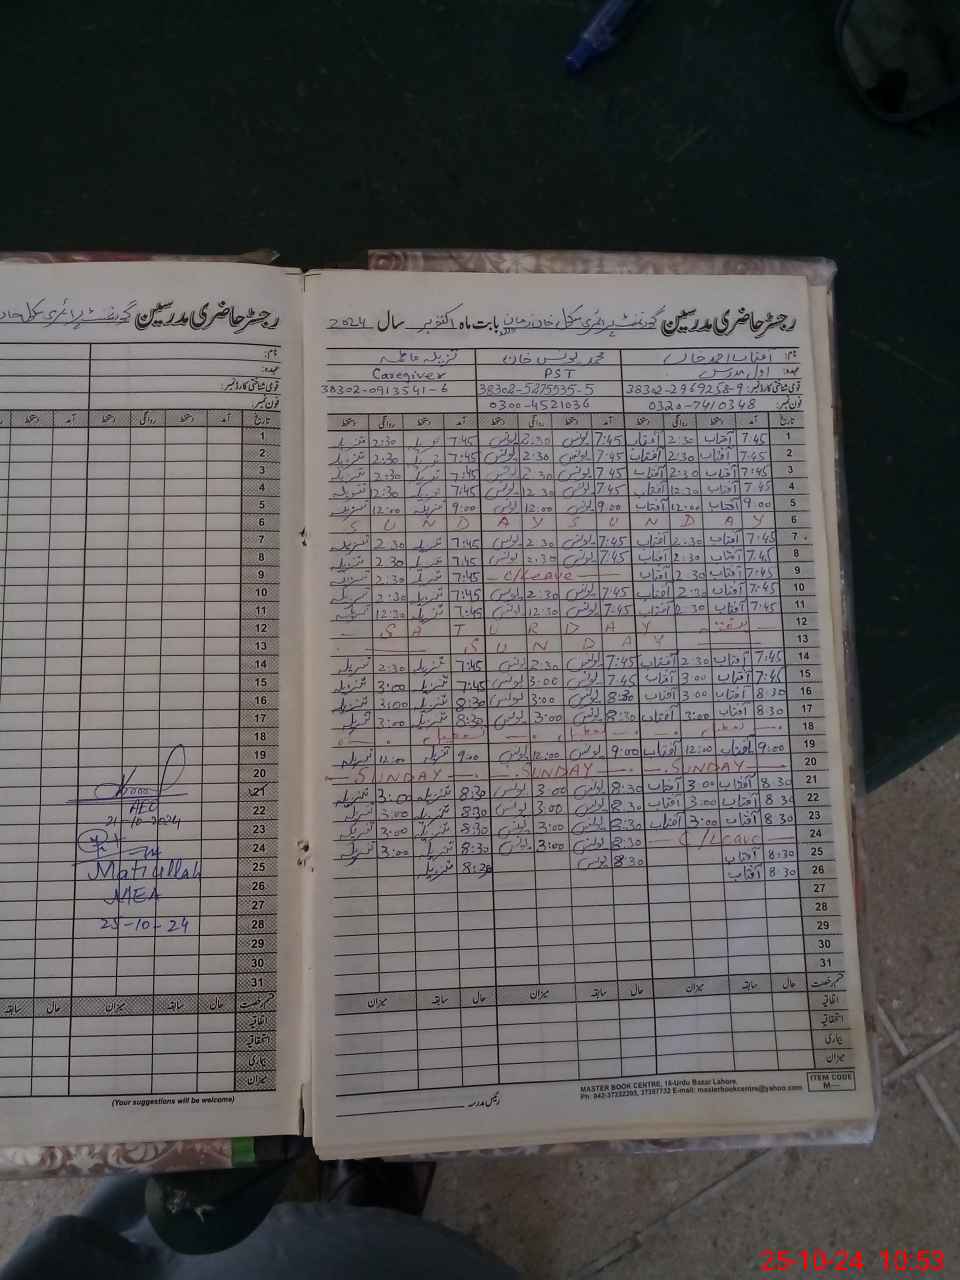 رجسٹر حاضری مدرسین گورنمنٹ پرائمری سکول
AEO
21-10-2024
Matiullah
MEA
25-10-24
(Your suggestions will be welcome)
رجسٹر حاضری مدرسین گورنمنٹ پرائمری سکول بابت ماہ اکتوبر سال 2024
نام: آفتاب احمد خان محمد یونس خان تنزیلہ فاطمہ
عہدہ: اول مدرس PST Caregiver
قومی شناختی کارڈ نمبر: 38302-2969258-9 38302-5275935-5 38302-0913541-6
فون نمبر: 0320-7410348 0300-4521036
تاریخ آمد دستخط روانگی دستخط آمد دستخط روانگی دستخط آمد دستخط روانگی دستخط
1 7:45 آفتاب 2:30 آفتاب 7:45 یونس 2:30 یونس 7:45 تنزیلہ 2:30 تنزیلہ
2 7:45 آفتاب 2:30 آفتاب 7:45 یونس 2:30 یونس 7:45 تنزیلہ 2:30 تنزیلہ
3 7:45 آفتاب 2:30 آفتاب 7:45 یونس 2:30 یونس 7:45 تنزیلہ 2:30 تنزیلہ
4 7:45 آفتاب 12:30 آفتاب 7:45 یونس 12:30 یونس 7:45 تنزیلہ 12:30 تنزیلہ
5 9:00 آفتاب 12:00 آفتاب 9:00 یونس 12:00 یونس 9:00 تنزیلہ 12:00 تنزیلہ
6 S U N D A Y S U N D A Y
7 7:45 آفتاب 2:30 آفتاب 7:45 یونس 2:30 یونس 7:45 تنزیلہ 2:30 تنزیلہ
8 7:45 آفتاب 2:30 آفتاب 7:45 یونس 2:30 یونس 7:45 تنزیلہ 2:30 تنزیلہ
9 7:45 آفتاب 2:30 آفتاب C/Leave 7:45 تنزیلہ 2:30 تنزیلہ
10 7:45 آفتاب 2:30 آفتاب 7:45 یونس 2:30 یونس 7:45 تنزیلہ 2:30 تنزیلہ
11 7:45 آفتاب 12:30 آفتاب 7:45 یونس 12:30 یونس 7:45 تنزیلہ 12:30 تنزیلہ
12 ہفتہ S A T U R D A Y
13 S U N D A Y
14 7:45 آفتاب 2:30 آفتاب 7:45 یونس 2:30 یونس 7:45 تنزیلہ 2:30 تنزیلہ
15 7:45 آفتاب 3:00 آفتاب 7:45 یونس 3:00 یونس 7:45 تنزیلہ 3:00 تنزیلہ
16 8:30 آفتاب 3:00 آفتاب 8:30 یونس 3:00 یونس 8:30 تنزیلہ 3:00 تنزیلہ
17 8:30 آفتاب 3:00 آفتاب 8:30 یونس 3:00 یونس 8:30 تنزیلہ 3:00 تنزیلہ
18 تعطیل تعطیل تعطیل
19 9:00 آفتاب 12:00 آفتاب 9:00 یونس 12:00 یونس 9:00 تنزیلہ 12:00 تنزیلہ
20 SUNDAY SUNDAY SUNDAY
21 8:30 آفتاب 3:00 آفتاب 8:30 یونس 3:00 یونس 8:30 تنزیلہ 3:00 تنزیلہ
22 8:30 آفتاب 3:00 آفتاب 8:30 یونس 3:00 یونس 8:30 تنزیلہ 3:00 تنزیلہ
23 8:30 آفتاب 3:00 آفتاب 8:30 یونس 3:00 یونس 8:30 تنزیلہ 3:00 تنزیلہ
24 C/Leave 8:30 یونس 3:00 یونس 8:30 تنزیلہ 3:00 تنزیلہ
25 8:30 آفتاب 8:30 یونس 8:30 تنزیلہ
26 8:30 آفتاب
27
28
29
30
31
قسم رخصت حال سابقہ میزان حال سابقہ میزان حال سابقہ میزان
اتفاقیہ
استحقاقیہ
بیماری
میزان
رئیس مدرسہ
MASTER BOOK CENTRE, 16-Urdu Bazar Lahore.
Ph: 042-37232295, 37357732 E-mail: masterbookcentre@yahoo.com
ITEM CODE
M—
25-10-24 10:53